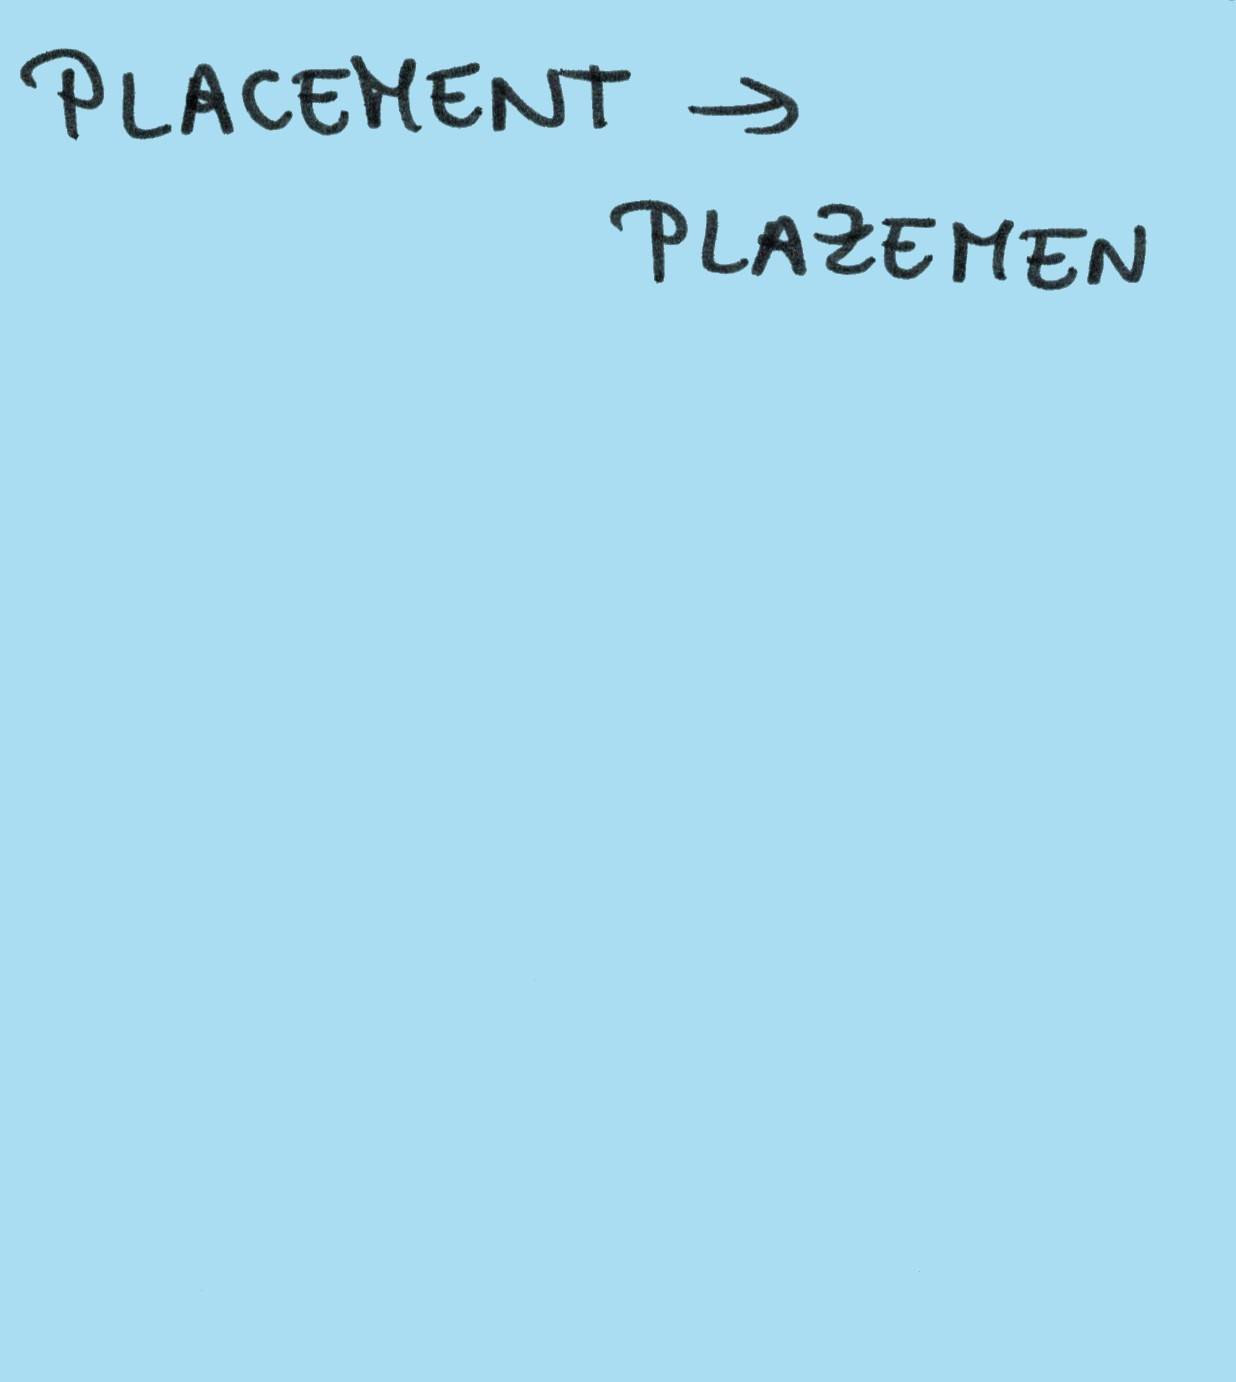 PLACEMENT →
PLAZEMEN